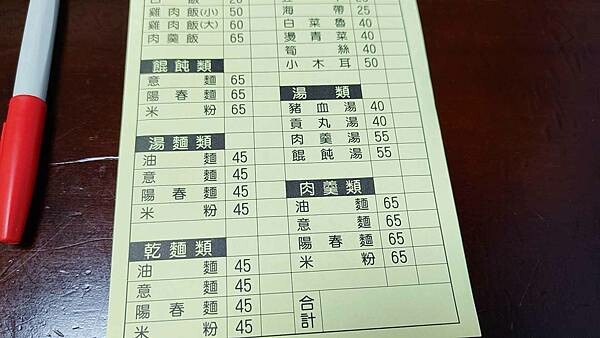 雞肉飯(小) 50
雞肉飯(大) 60
肉羹飯 65
餛飩類
意麵 65
陽春麵 65
米粉 65
湯麵類
油麵 45
意麵 45
陽春麵 45
米粉 45
乾麵類
油麵 45
意麵 45
陽春麵 45
米粉 45
海帶 25
白菜魯 40
燙青菜 40
筍絲 40
小木耳 50
湯類
豬血湯 40
貢丸湯 40
肉羹湯 55
餛飩湯 55
肉羹類
油麵 65
意麵 65
陽春麵 65
米粉 65
合計